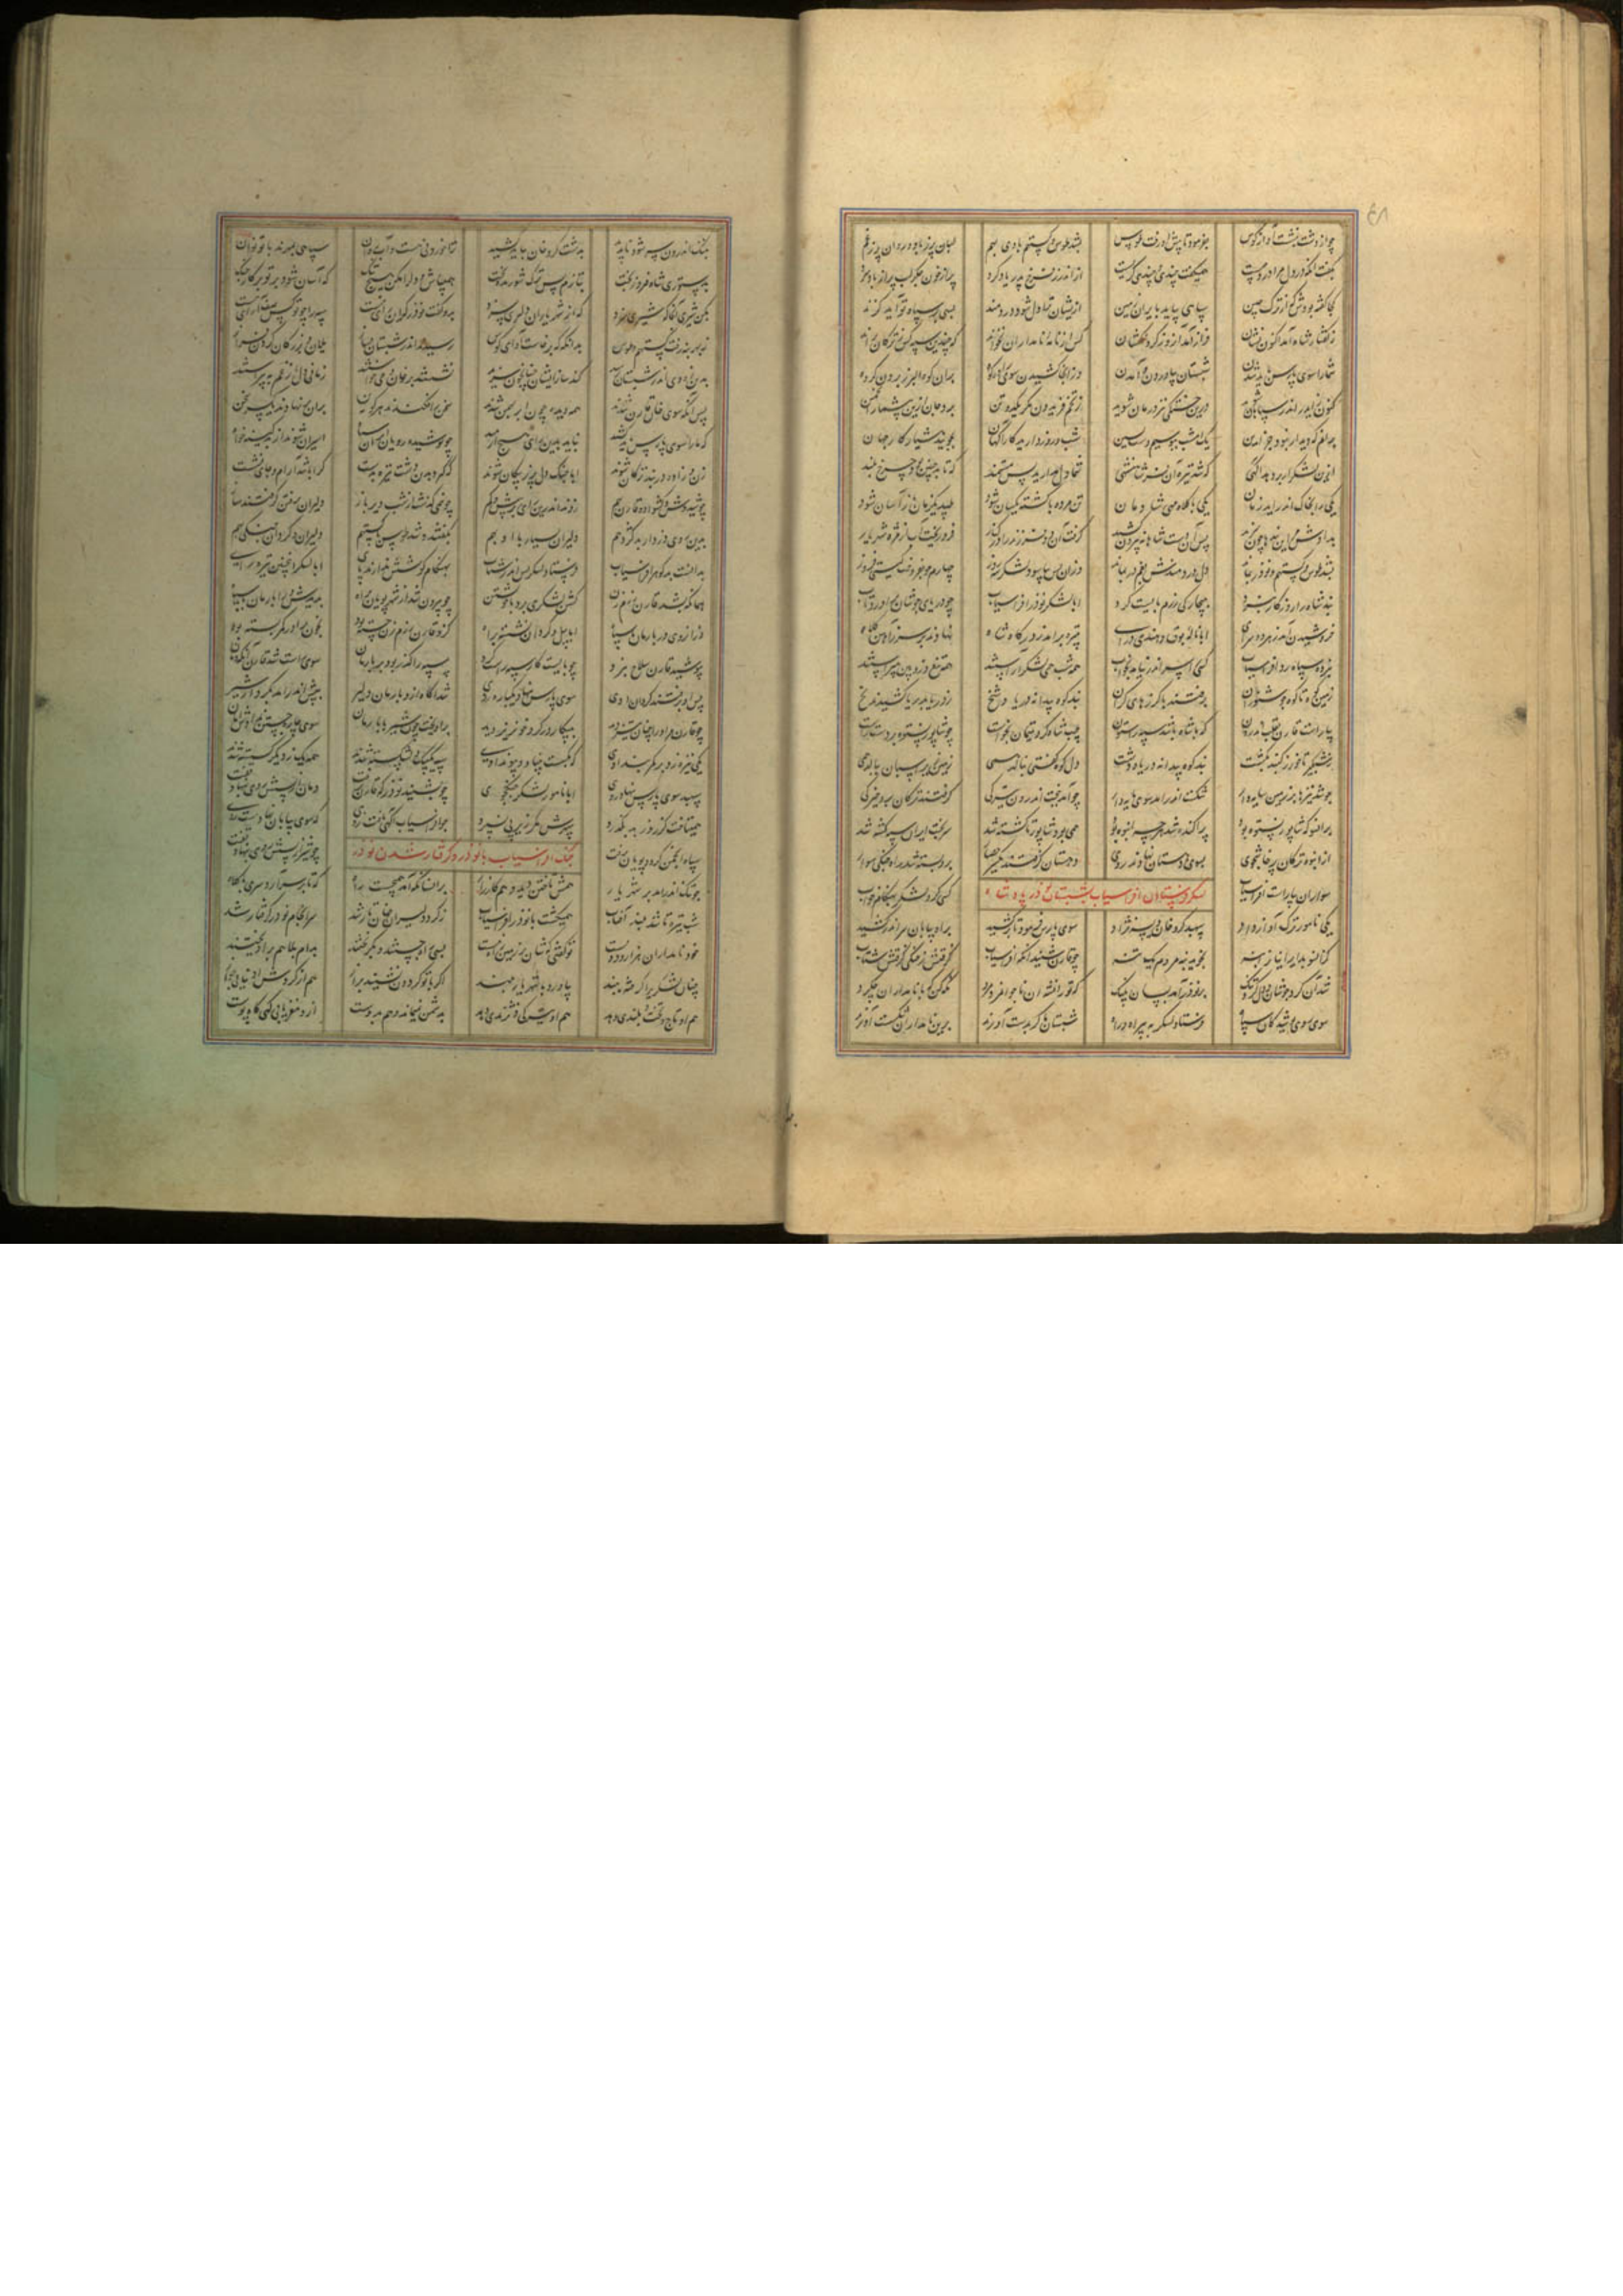 چو از دشت بنشست آواز کوس بفرمود تا پیش او رفت طوس بشد طوس و گستهم با وی بهم لبان پر ز باد و روان پر ز غم
بگفت آنکه در دل مرا درد چیست همیگفت چندی و چندی گریست از اندرز فرخ پدر یاد کرد پر از خون جگر لب پر از باد سرد
کجا گفته بودش که از ترک و چین سپاهی بیاید بایران زمین ازیشان ترا دل شود دردمند بسی بر سپاه تو آید گزند
ز گفتار شاه آمد اکنون نشان فراز آمد آن روز گردنکشان کس از نامه نامداران نخواند که چندین سپه کس ز ترکان براند
شما را سوی پارس باید شدن شبستان بیاوردن و آمدن وز آنجا کشیدن سوی زاوه کوه بران کوه البرز بردن گروه
کنون زایدر اندر سپاهان ز تخم فریدون مگر یک دو تن برد جان ازین بیشمار انجمن
ندانم که دیدار بود جز این یک امشب بکوشیم دست پسین شب و روز دارید کارآگهان بجویید هشیار کار جهان
ازین لشکر ار بد دهد آگهی که شد تیره آن فر شاهنشهی شما دل مدارید بس مستمند که تا بد چنین بود چرخ بلند
یکی را بجنگ اندر آید زمان یکی با کلاه مهی شادمان تن مرده با کشته یکسان شود طپد یک زمان باز آسان شود
بدادش مر این پندها چون سزید پس آن دست شاهانه بیرون کشید گرفت آن دو فرزند را در کنار فرو ریخت آب از مژه شهریار
بشد طوس و گستهم و نوذر بماند دل دردمندش بغم در بماند وزان پس بیاسود لشکر سه روز چهارم چو بفروخت گیتی فروز
نبد شاه را روزگار نبرد ببیچارگی رزم بایست کرد ابا لشکر نوذر افراسیاب چو دریای جوشان بد و رود آب
خروشیدن آمد ز پرده سرای ابا ناله بوق و هندی درای تبیره برآمد ز درگاه شاه نهادند بر سر ز آهن کلاه
بپرده سپاه رد افراسیاب کسی را سر اندر نیامد بخواب همه شب همی لشکر آراستند همی تیغ و ژوبین بپیراستند
زمین کوه تا کوه جوشنوران برفتند با گرزهای گران نبد کوه پیدا نه دریا و شخ ز دریا بدریا کشیدند نخ
بیاراست قارن بقلب اندرون که با شاه باشد سپه را ستون چپ شاه گرد تلیمان بخواست چو شاپور نستوه بر دست راست
ز شبگیر تا خور ز گنبد بگشت نبد کوه پیدا نه دریا و دشت دل کوه گفتی بنالد همی زمین زیر اسپان بنالد همی
چو شد نیزها بر زمین سایه دار شکست اندر آمد سوی مایه دار چو آمد ببخت اندرون تیرگی گرفتند ترکان برو چیرگی
بران سو که شاپور نستوه بود پراکنده شد هرچه انبوه بود همی بود شاپور تا کشته شد سر بخت ایران سپه گشته شد
از انبوه ترکان پرخاشجوی بسوی دهستان نهادند روی دهستان گرفتند زیشان حصار برو بسته شد راه جنگی سوار
سواران بیاراست افراسیاب کسی کرد لشکر بهنگام خواب
لشکر فرستادن افراسیاب بشبستان نوذر پادشاه
یکی نامور ترک را کرد یاد سپهبد کروخان ویسه نژاد سوی پارس فرمود تا برکشید براه بیابان سر اندر کشید
کز آنسو بد ایرانیان را بنه بجوید بنه مردم یک تنه چو قارن شنید آنکه افراسیاب گرفتش شتاب
شد از رشک جوشان و دل کرد تنگ بر نوذر آمد بسان پلنگ که توران شه آن ناجوانمرد مرد نگه کن که با نامداران چه کرد
سوی روی پوشیدگان سپاه فرستاد لشکر به بیراه راه شبستان ما گر بدست آورند برین نامداران شکست آورند
بننگ اندرون سر شود ناپدید بدشت کروخان بباید کشید ترا خوردنی هست و آب روان سپاهی بمهرند با تو نوان
بدستوری شاه فیروز بخت بتازم پس ترک شوریده بخت همی باش و دل را مکن هیچ تنگ که آسان شود بر تو بر کار جنگ
بکن شیری آنجا که شیری سزد که از شهریاران دلیری سزد بدو گفت نوذر که این رای نیست سپه را چو تو لشکر آرای نیست
ز بهر بنه رفت گستهم و طوس بدانگه که برخاست آوای کوس رسید اندر شبستان فراز یلان و بزرگان گردن فراز
بدین زودی اندر شبستان رسد کند ساز ایشان چنان چون سزد نشستند بر خوان و می خواستند زمانی دل از غم بپیراستند
پس آنگه سوی خان قارن شدند همه دیده چون ابر بهمن شدند سخن را فکندند هر گونه بن بران بر نهادند یکسر سخن
که ما را سوی پارس باید کشید نباید بدین رای هیچ آرمید چو پوشیده رویان ایران سپاه اسیران شوند از بد کینه خواه
زن و زاده در بند ترکان شوند ابا جنگ دل پر ز پیکان شوند که گیرد بدین دشت نیزه بدست کرا باشد آرام و جای نشست
چو شیدوش و کشواد و قارن بهم زدند اندرین رای بر بیش و کم چو نیمی گذشت از شب دیرباز دلیران برفتن گرفتند ساز
بدین روی دزدار بد گژدهم دلیران بیدار با او بهم برفتند و شد طوس با گستهم دلیران و گردان جنگی بهم
بدانست بدگوهر افراسیاب فرستاد لشکر پس اندر شتاب بهنگام کوشش ندارند پای ابا لشکر اینچنین تیره رای
همانگه بشد قارن رزم زن گشن لشکری برد با خویشتن چو بیرون شد از شهر پویان براه بارمان با سپاه
دز از روی در بارمان با سپاه ابا پیل و گردان نشسته براه کزو قارن رزم زن خسته بود بخون برادر کمر بسته بود
بپوشید قارن سلاح نبرد چو بایست کار سپه راست کرد سپه را گذر بود بر بارمان سوی راست شد قارن آنگه دمان
پس او برفتند گردان اوی سوی پارس بنهاد یکباره روی شد آگاه ازو بارمان دلیر بپیش اندر آمد بکردار شیر
چو قارن مر او را چنان تیز دید بپیکار در گرد خونریز دید برآویخت چون شیر با بارمان سوی چاره جستن ندادش زمان
یکی نیزه زد بر کمربند اوی که بگسست بنیاد و پیوند اوی سپه یک بیک دلشکسته شدند همه یک ز دیگر گسسته شدند
سپهبد سوی پارس بنهاد روی ابا نامور لشکر جنگجوی چو بشنید نوذر که قارن برفت دمان از پسش روی بنهاد و تفت
همیتاخت کز روز بد بگذرد سپهرش مگر زیر پی نسپرد چو افراسیاب آگهی یافت زوی که سوی بیابان نهادست روی
سپاه انجمن کرد و پویان برفت چو شیر از پسش روی بنهاد و تفت
جنگ افراسیاب با نوذر و گرفتار شدن نوذر
چو تنگ اندر آمد بر شهریار همش تاختن دید و هم کارزار بر انسان که آمد همیجست راه که تا بر سر آرد سری بی کلاه
شب تیره تا شد بلند آفتاب همیگشت با نوذر افراسیاب ز گرد دلیران جهان تار شد سرانجام نوذر گرفتار شد
خود و نامداران هزار و دویست تو گفتی کشان بر زمین جای نیست بسی راه جستند و بگریختند بدام بلا هم برآویختند
چنان لشکری را گرفته ببند بیاورد با شهریار بلند اگر با تو گردون نشیند براز هم از گردش او نیابی جواز
هم او تاج و تخت و بلندی دهد هم او تیرگی و نژندی دهد بدشمن هم بدوست ازو مغز یابی گهی گاه پوست